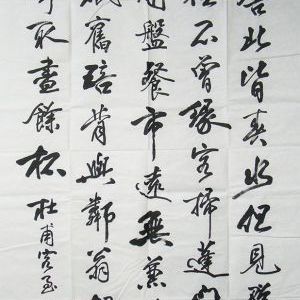 北皆春水但見
不曾緣客掃蓬門
盤餐市遠無兼
舊醅肯與鄰翁
取盡餘杯杜甫客至